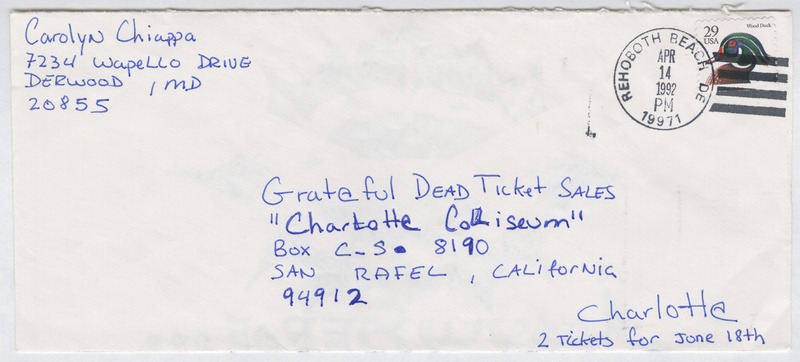 Carolyn Chiappa
7234 Wapello DRIVE
DERWOOD, MD
20855
Wood Duck
29
USA
REHOBOTH BEACH DE
APR
14
1992
PM
19971
Grateful DEAD Ticket SALES
"Charlotte Colliseum"
Box C-S. 8190
SAN RAFEL, CALifornia
94912
Charlotte
2 Tickets for June 18th